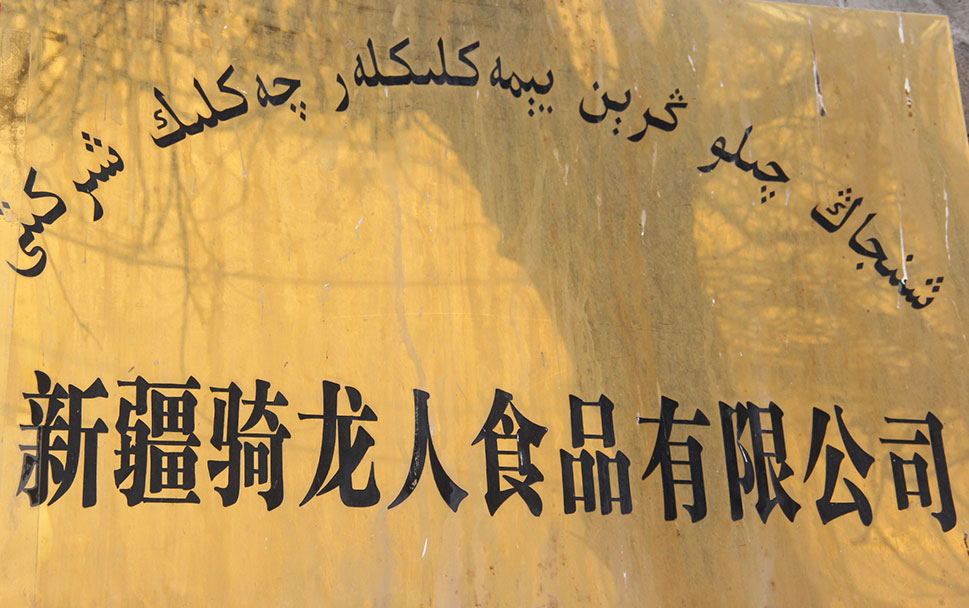 شىنجاڭ چىلو ڭرېن يېمەكلىكلەر چەكلىك شىركىتى
新疆骑龙人食品有限公司